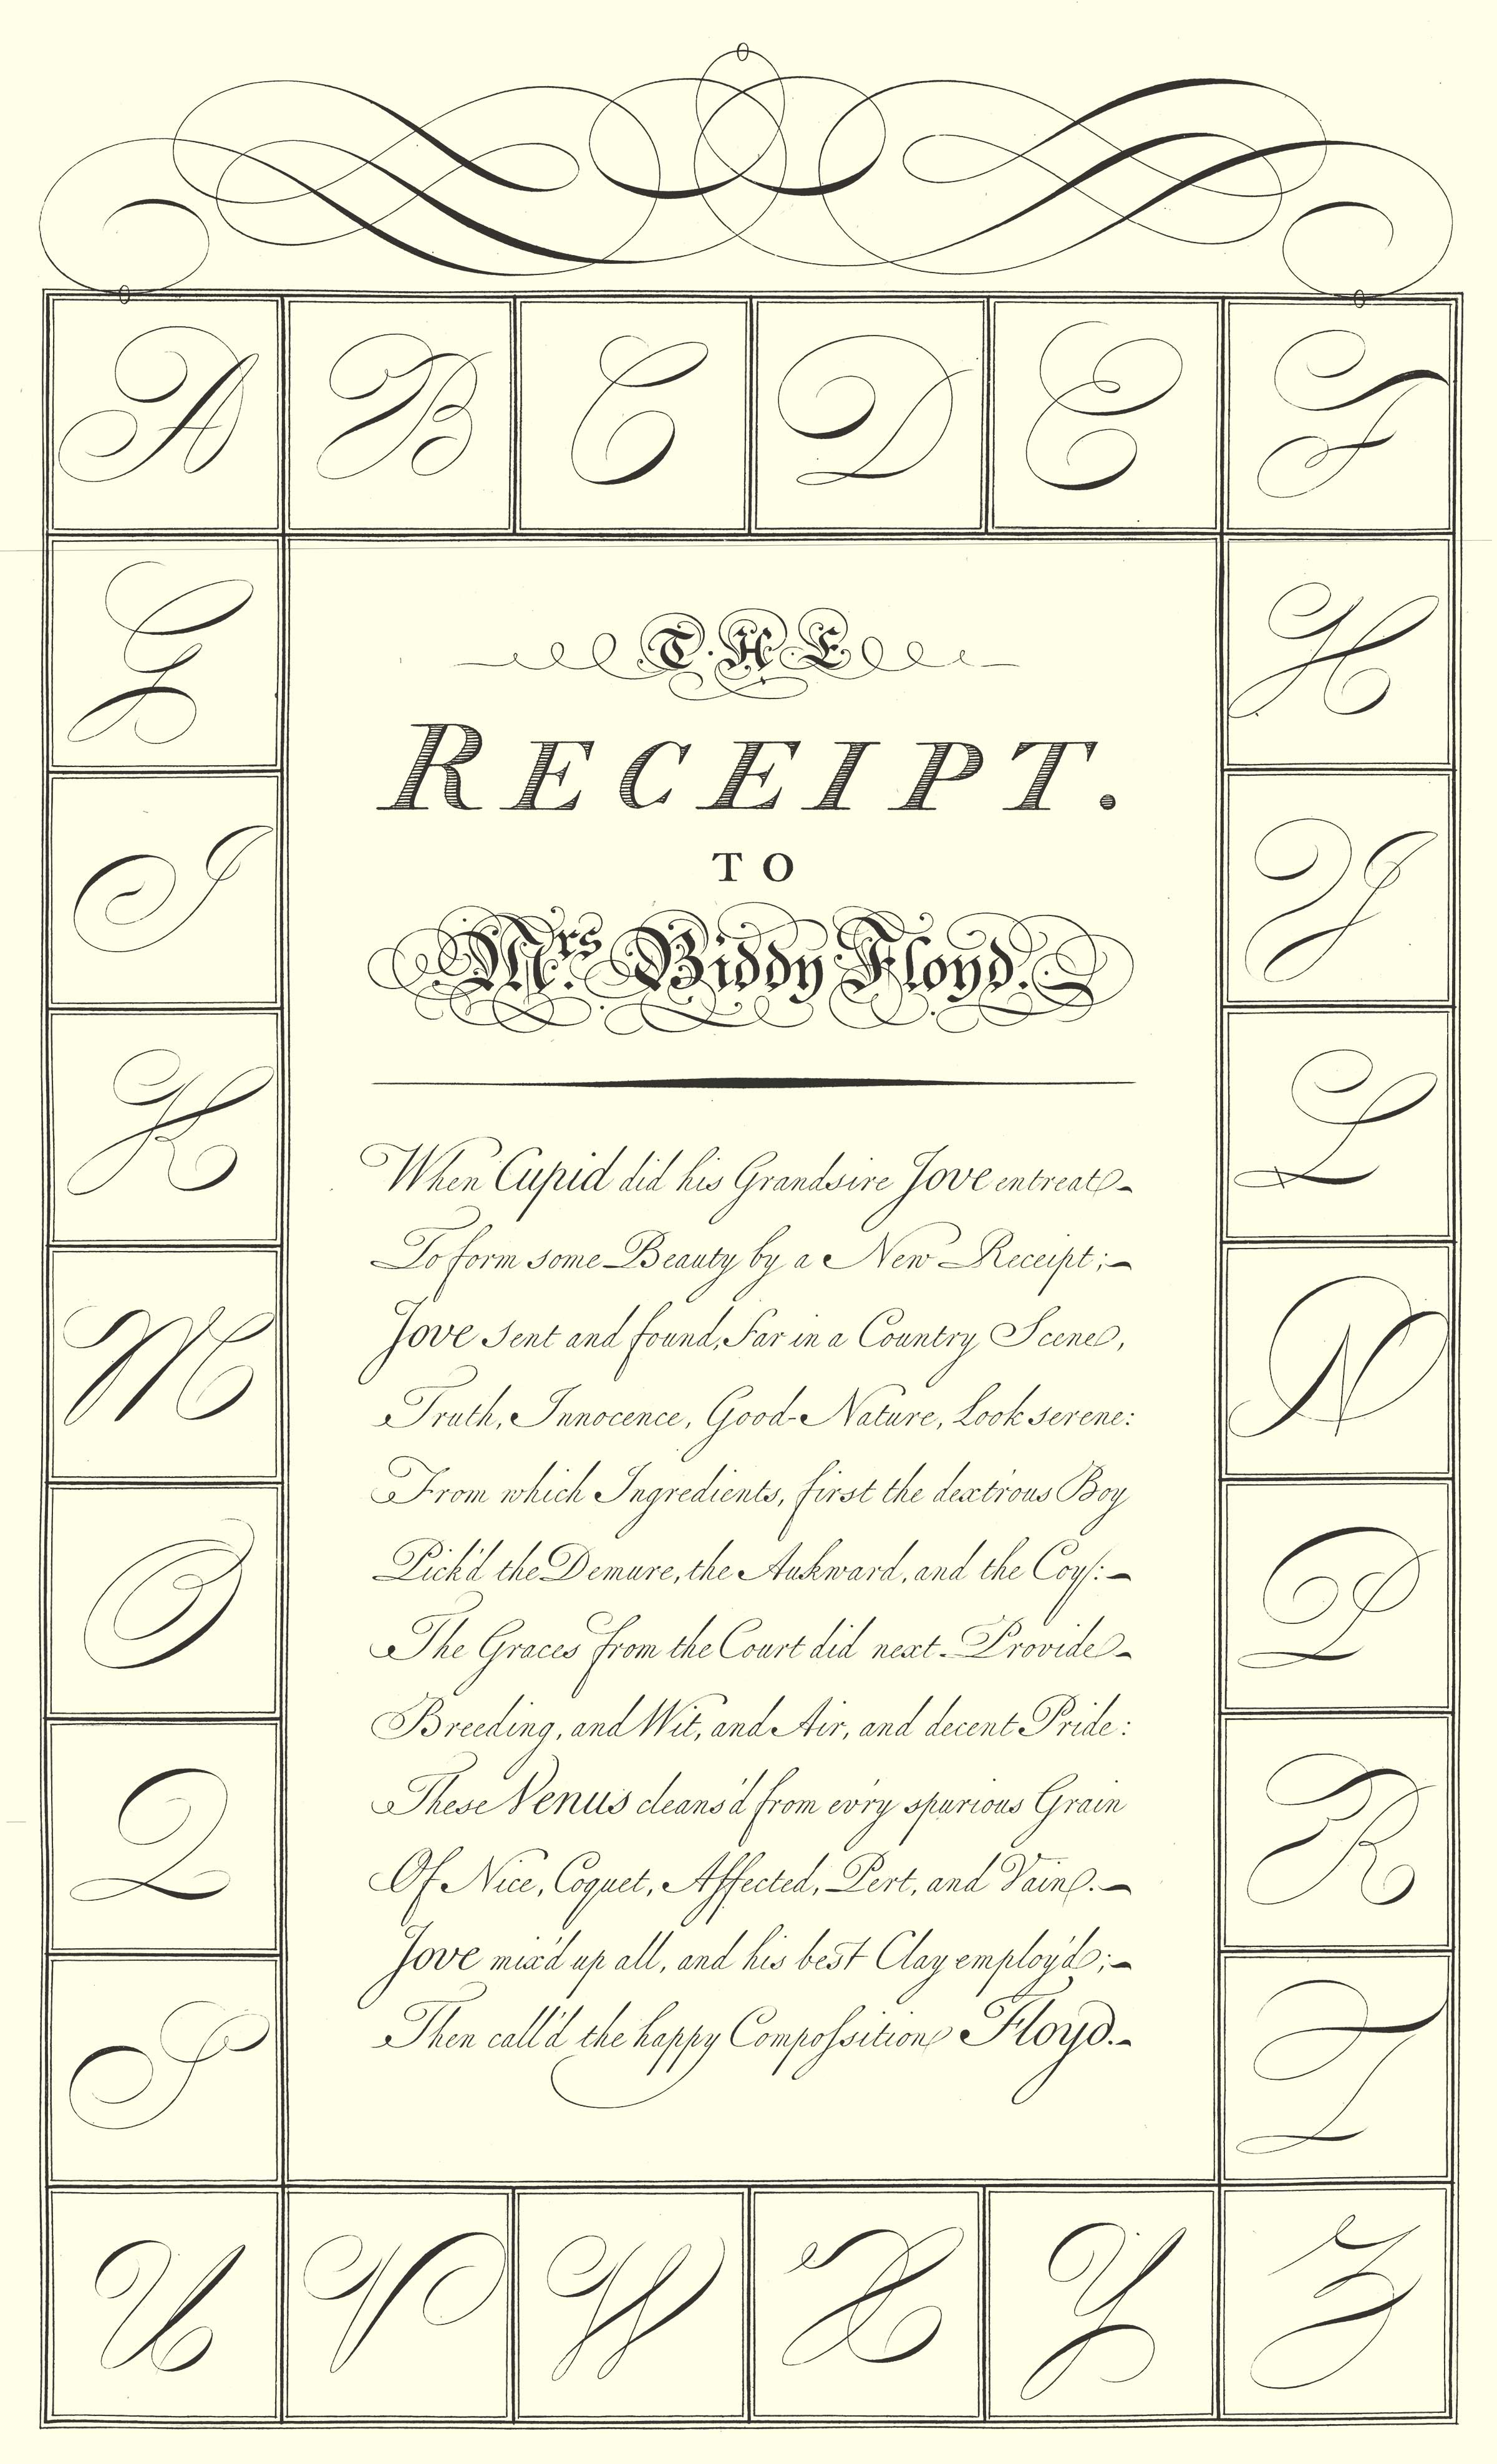 A B C D E F
G H
I J
K L
M N
O P
Q R
S T
U V W X Y Z
T. H. E.
RECEIPT.
TO
Mrs. Biddy Floyd.
When Cupid did his Grandsire Jove entreat
To form some Beauty by a New Receipt;
Jove sent and found, far in a Country Scene,
Truth, Innocence, Good-Nature, Look serene:
From which Ingredients, first the dextrous Boy
Pick'd the Demure, the Aukward, and the Coy:
The Graces from the Court did next Provide
Breeding, and Wit, and Air, and decent Pride:
These Venus cleans'd from ev'ry spurious Grain
Of Nice, Coquet, Affected, Pert, and Vain.
Jove mix'd up all, and his best Clay employ'd;
Then call'd the happy Compossition Floyd.